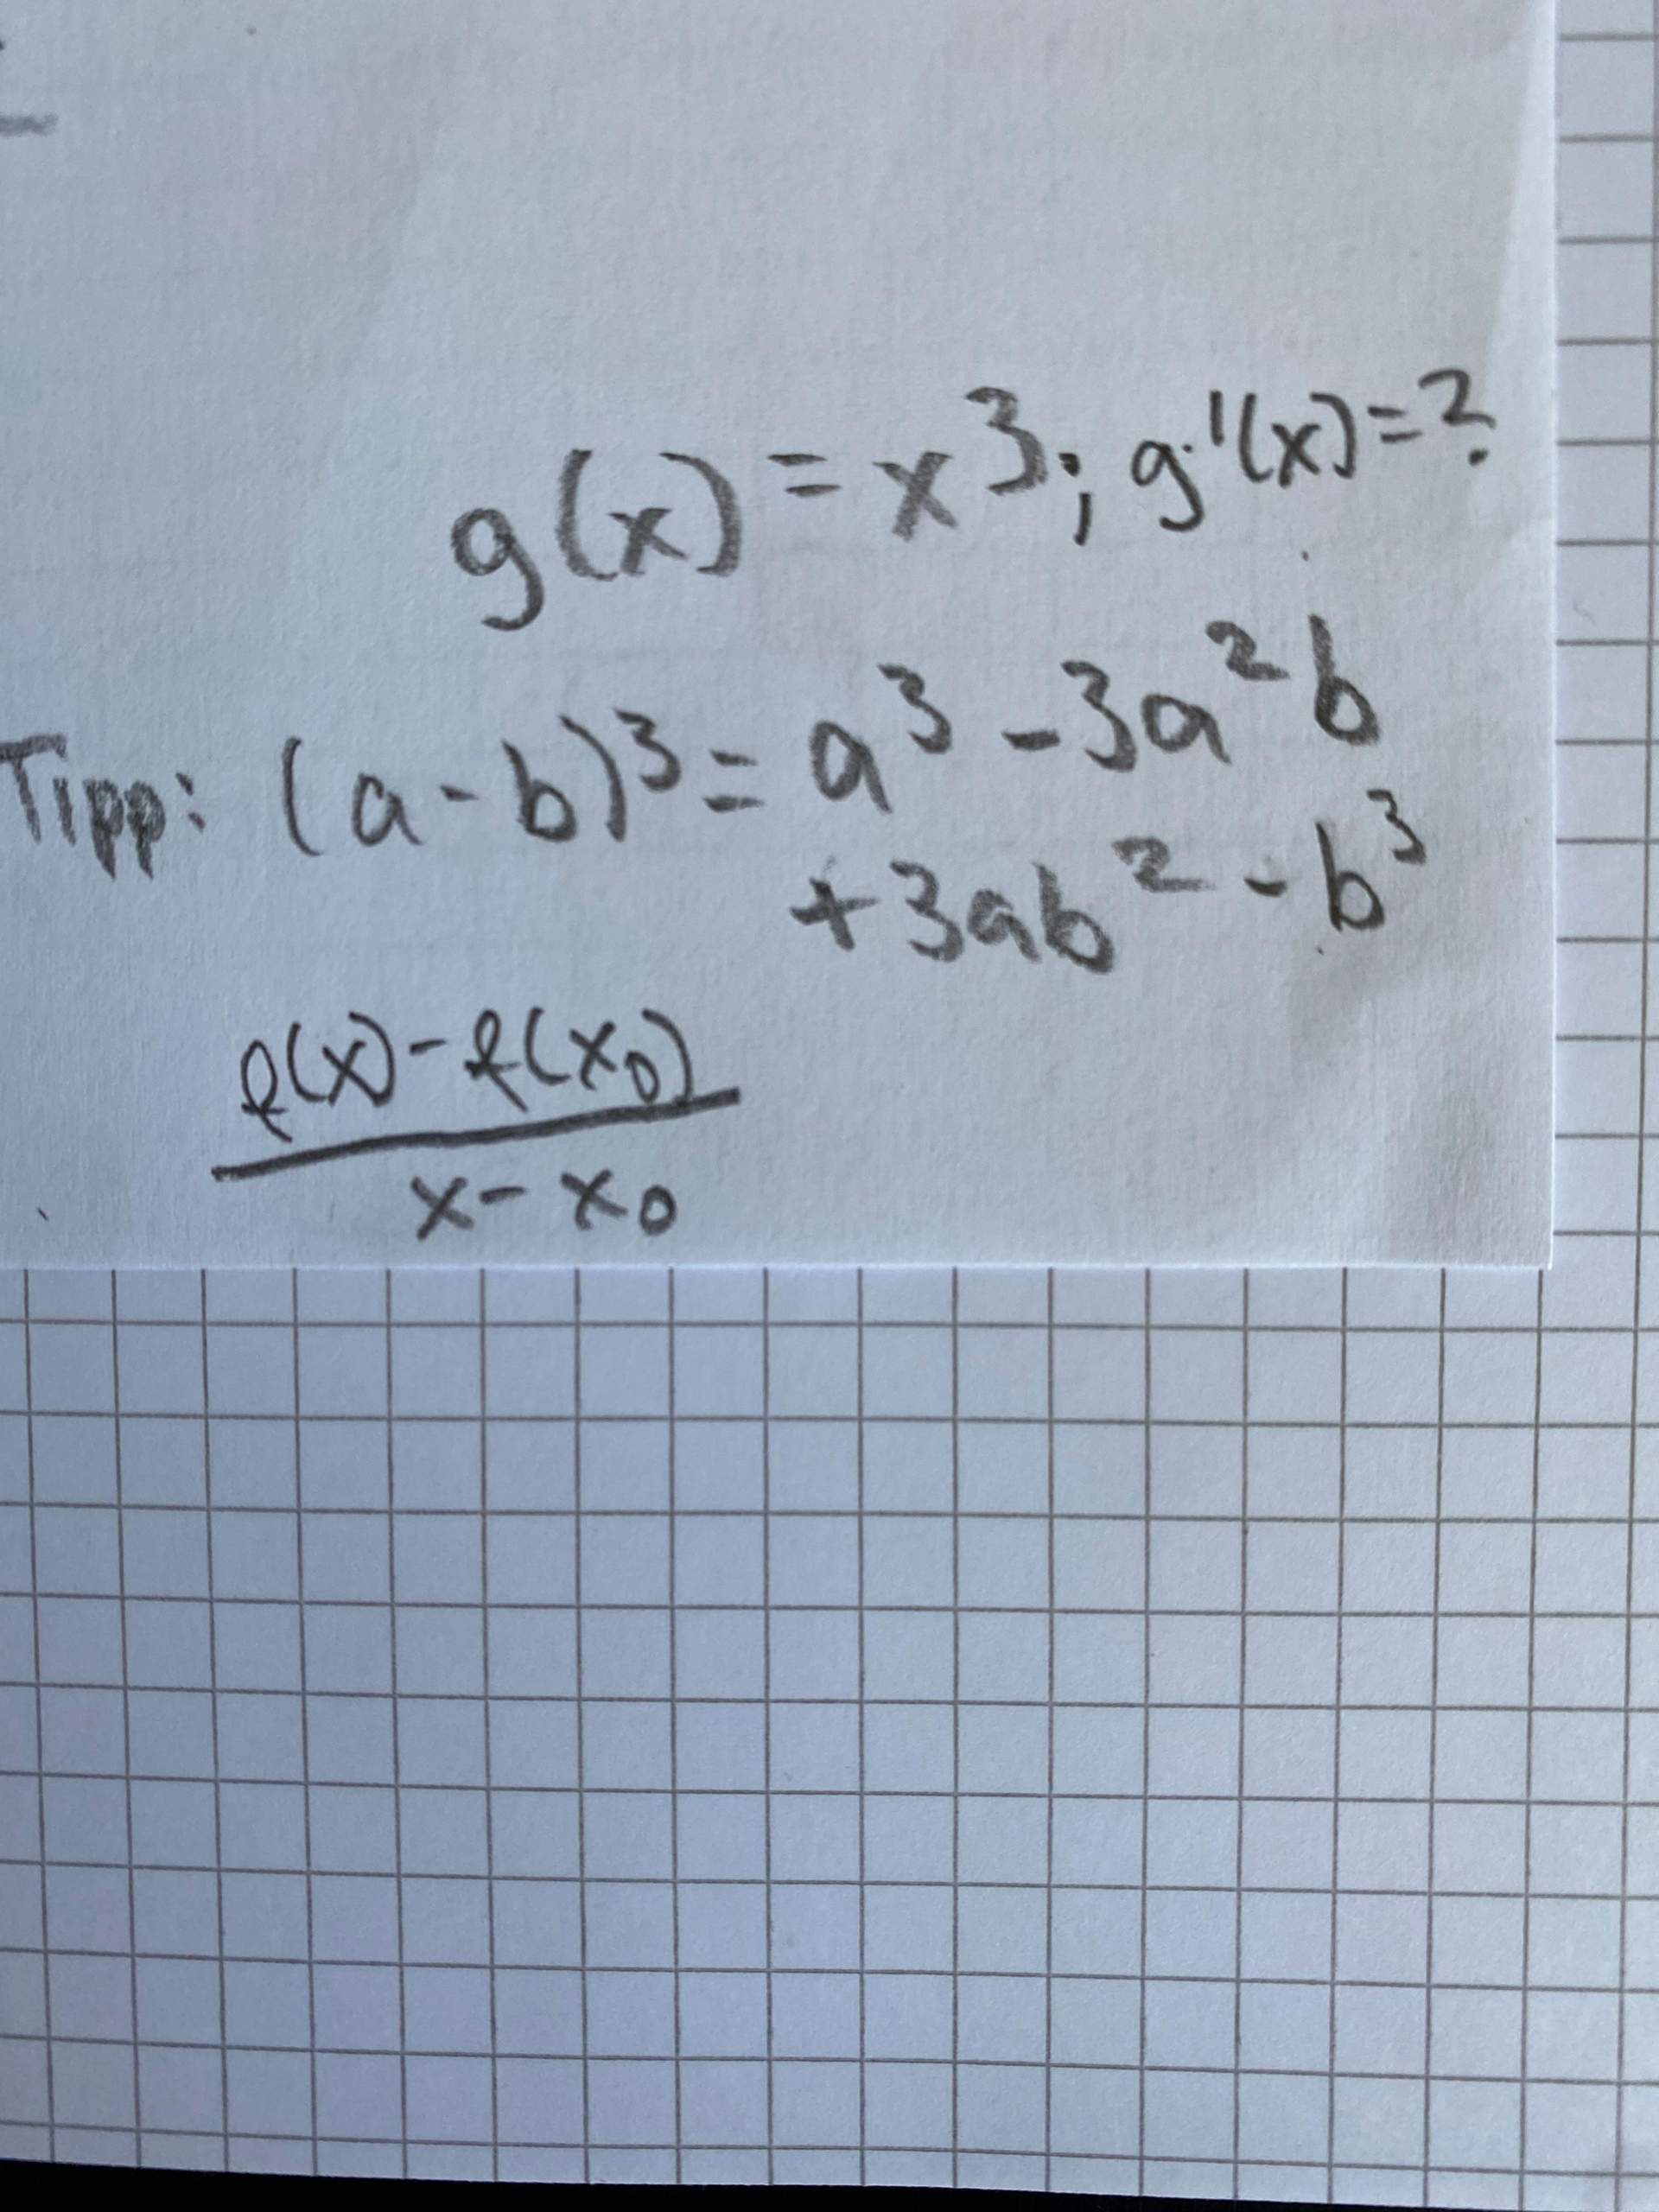 g(x) = x³; g'(x) = ?
Tipp: (a - b)³ = a³ - 3a²b
+ 3ab² - b³
f(x) - f(x₀)
x - x₀